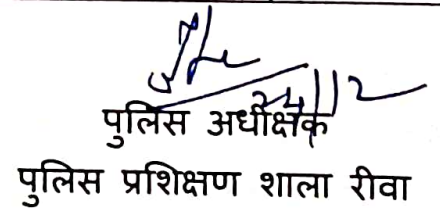 24/12
पुलिस अधीक्षक
पुलिस प्रशिक्षण शाला रीवा